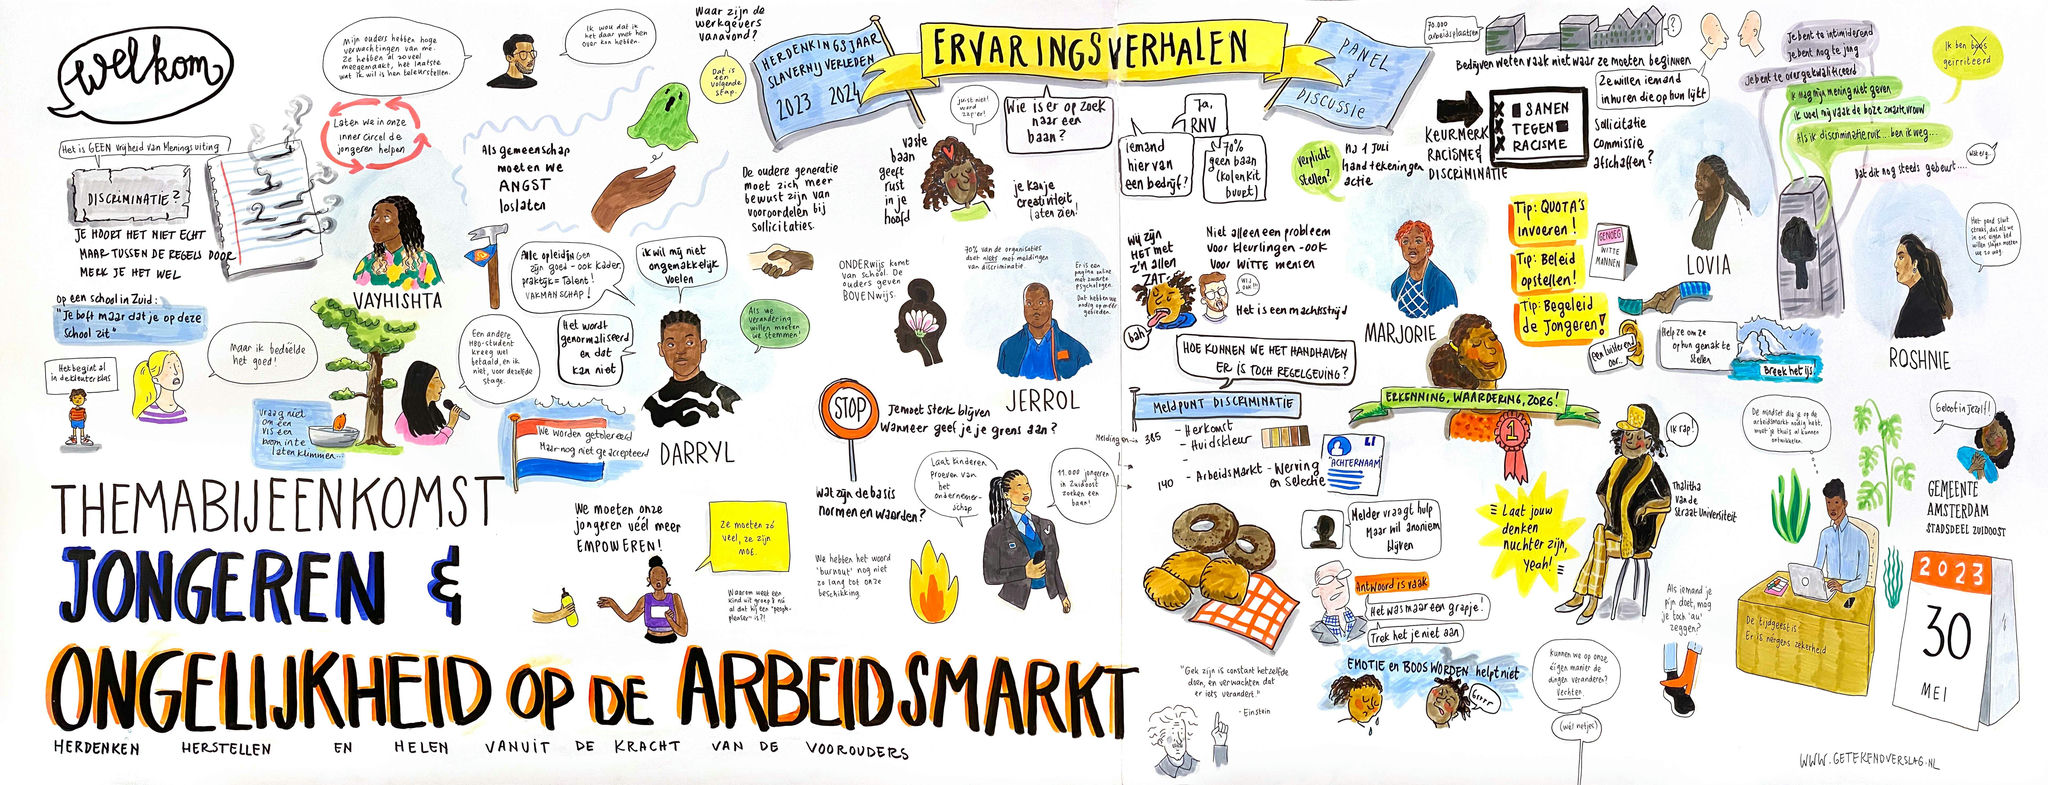 Welkom
Mijn ouders hebben hoge
verwachtingen van me.
Ze hebben al zoveel
meegemaakt, het laatste
wat ik wil is hen teleurstellen.
Ik wou dat ik
het daar met hen
over kon hebben.
Waar zijn de
werkgevers
vanavond?
Dat is
een
volgende
stap.
HERDENKINGSJAAR
SLAVERNIJVERLEDEN
2023 2024
ERVARINGSVERHALEN
PANEL
&
DISCUSSIE
70.000
arbeidsplaatsen
?
Bedrijven weten vaak niet waar ze moeten beginnen
Ze willen iemand
inhuren die op hun lijkt
Je bent te intimiderend
je bent nog te jong
Je bent te overgekwalificeerd
Ik mag mijn mening niet geven
ik voel mij vaak de boze zwarte vrouw
Als ik discriminatie ruik... ben ik weg...
Ik ben boos
geïrriteerd
Dat dit nog steeds gebeurt....
Het is GEEN vrijheid van Meningsuiting
DISCRIMINATIE?
JE HOORT HET NIET ECHT
MAAR TUSSEN DE REGELS DOOR
MERK JE HET WEL
Laten we in onze
inner circel de
jongeren helpen
VAYHISHTA
Als gemeenschap
moeten we
ANGST
loslaten
De oudere generatie
moet zich meer
bewust zijn van
vooroordelen bij
Sollicitaties.
vaste
baan
geeft
rust
in je
hoofd
juist niet!
word
zzp'er!
Wie is er op zoek
naar een
baan?
je kan je
creativiteit
laten zien!
iemand
hier van
een bedrijf?
Ja,
RNV
70%
geen baan
(kolenkit
buurt)
verplicht
stellen?
na 1 juli
handtekeningen
actie
KEURMERK
RACISME &
DISCRIMINATIE
SAMEN
TEGEN
RACISME
Sollicitatie
commissie
afschaffen?
LOVIA
Het pand sluit
straks, dus als we
in ons eigen bed
willen slapen moeten
we zo weg.
ROSHNIE
op een school in Zuid:
"Je boft maar dat je op deze
school zit"
Maar ik bedoelde
het goed!
Het begint al
in de kleuterklas
Vraag niet
om een
vis een
boom in te
laten klimmen...
Alle opleidingen
zijn goed - ook kader,
praktijk = Talent!
VAKMANSCHAP!
Een andere
HBO-student
kreeg wel
betaald, en ik
niet, voor dezelfde
stage.
ik wil mij niet
ongemakkelijk
voelen
Het wordt
genormaliseerd
en dat
kan niet
Als we
verandering
willen moeten
we stemmen!
DARRYL
We worden getolereerd
Maar nog niet geaccepteerd
ONDERwijs komt
van school. De
ouders geven
BOVENwijs.
70% van de organisaties
doet niets met meldingen
van discriminatie
Er is een
pagina online
met zwarte
psychologen.
Dat hebben we
nodig op meer
gebieden.
JERROL
Wij zijn
HET met
z'n allen
ZAT
bah!
Wij
ook!
Niet alleen een probleem
voor kleurlingen - ook
voor WITTE mensen
Het is een machtsstrijd
HOE KUNNEN WE HET HANDHAVEN
ER IS TOCH REGELGEVING?
MARJORIE
Tip: QUOTA'S
invoeren!
Tip: Beleid
opstellen!
Tip: Begeleid
de Jongeren!
GENOEG
WITTE
MANNEN
een luisterend
oor...
Help ze om ze
op hun gemak te
stellen
Breek het ijs
ERKENNING, WAARDERING, ZORG!
1
STOP
Je moet sterk blijven
Wanneer geef je je grens aan?
Wat zijn de basis
normen en waarden?
Laat kinderen
proeven van
het
ondernemer-
schap
11.000 jongeren
in Zuidoost
zoeken een
baan!
We hebben het woord
'burnout' nog niet
zo lang tot onze
beschikking.
MELDPUNT DISCRIMINATIE
Meldingen
385
- Herkomst
- Huidskleur
-
140
- Arbeidsmarkt - Werving
en Selectie
ACHTERNAAM
Melder vraagt hulp
Maar wil anoniem
blijven
Antwoord is vaak
Het was maar een grapje!
Trek het je niet aan
EMOTIE en BOOS WORDEN helpt niet
Grrr
Laat jouw
denken
nuchter zijn,
yeah!
IK rap!
Thalitha
van de
Straat Universiteit
De mindset die je op de
arbeidsmarkt nodig hebt,
moet je thuis al kunnen
ontwikkelen.
Geloof in Jezelf!
GEMEENTE
AMSTERDAM
STADSDEEL ZUIDOOST
De tijdgeest is:
Er is nergens zekerheid
2023
30
MEI
Als iemand je
pijn doet, mag
je toch 'au'
zeggen?
Kunnen we op onze
eigen manier de
dingen veranderen?
Vechten.
(wél netjes)
"Gek zijn is constant hetzelfde
doen, en verwachten dat
er iets verandert."
- Einstein
We moeten onze
jongeren véél meer
EMPOWEREN!
Ze moeten zó
veel, ze zijn
MOE.
Waarom weet een
kind uit groep 8 nú
al dat hij een 'people-
pleaser' is?!
THEMABIJEENKOMST
JONGEREN &
ONGELIJKHEID OP DE ARBEIDSMARKT
HERDENKEN HERSTELLEN EN HELEN VANUIT DE KRACHT VAN DE VOOROUDERS
WWW.GETEKENDVERSLAG.NL